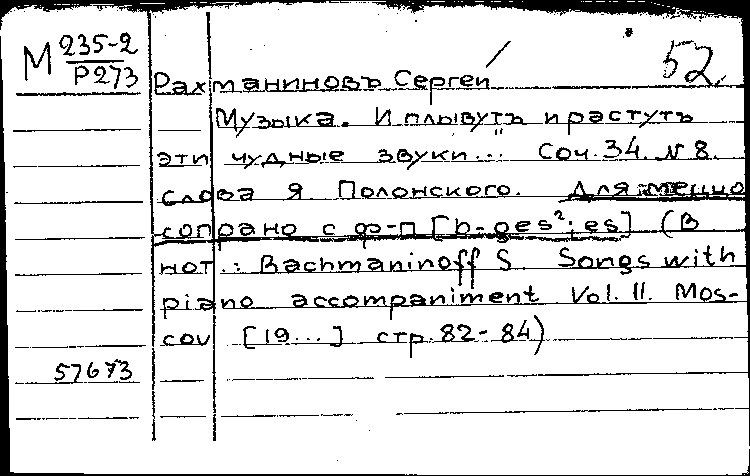 М 235-2
Р273
52.
Рахманиновъ Сергей
Музыка. И плывутъ и растутъ
эти чудные звуки... Соч. 34. N 8.
слова Я. Полонского. Для меццо
сопрано с ф-п [b-ges²; es] (В
нот.: Rachmaninoff S. Songs with
piano accompaniment Vol. II. Mos-
cou [19...] стр. 82-84)
57673